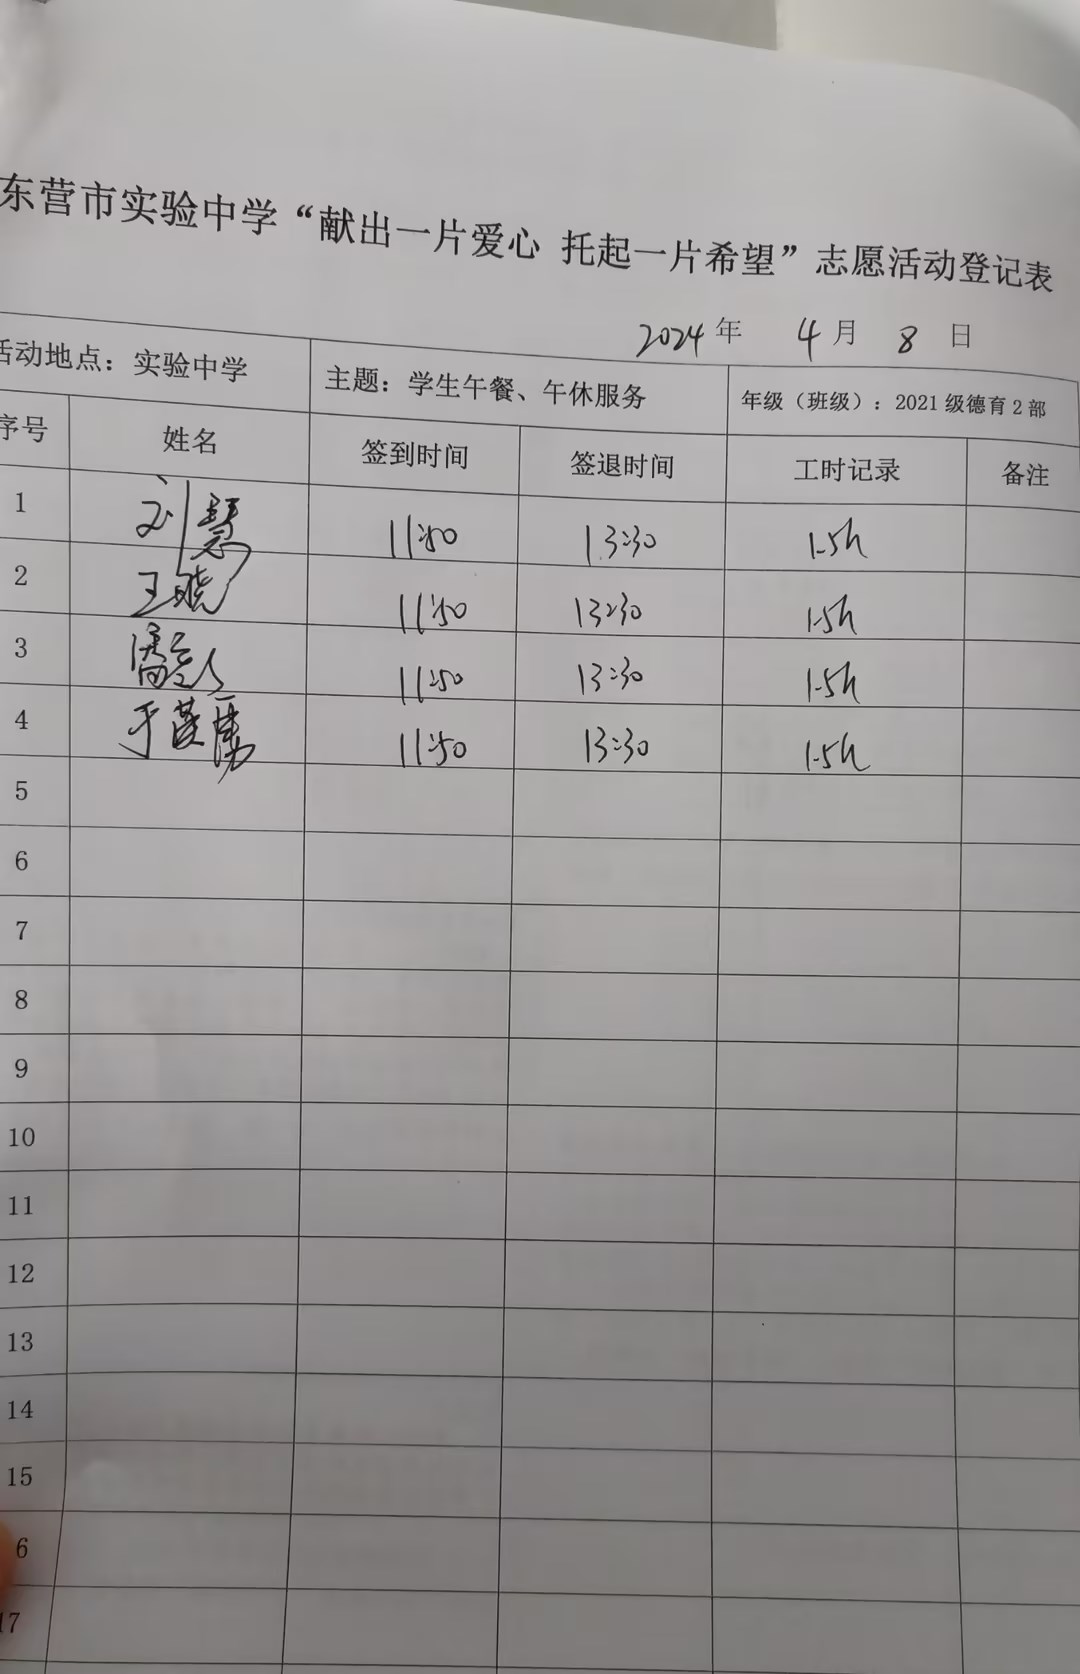 东营市实验中学“献出一片爱心 托起一片希望”志愿活动登记表
2024年 4月 8日
活动地点：实验中学 主题：学生午餐、午休服务 年级（班级）：2021级德育2部
序号 姓名 签到时间 签退时间 工时记录 备注
1 刘慧 11:50 13:30 1.5h
2 王晓 11:50 13:30 1.5h
3 11:50 13:30 1.5h
4 于 11:50 13:30 1.5h
5
6
7
8
9
10
11
12
13
14
15
6
17